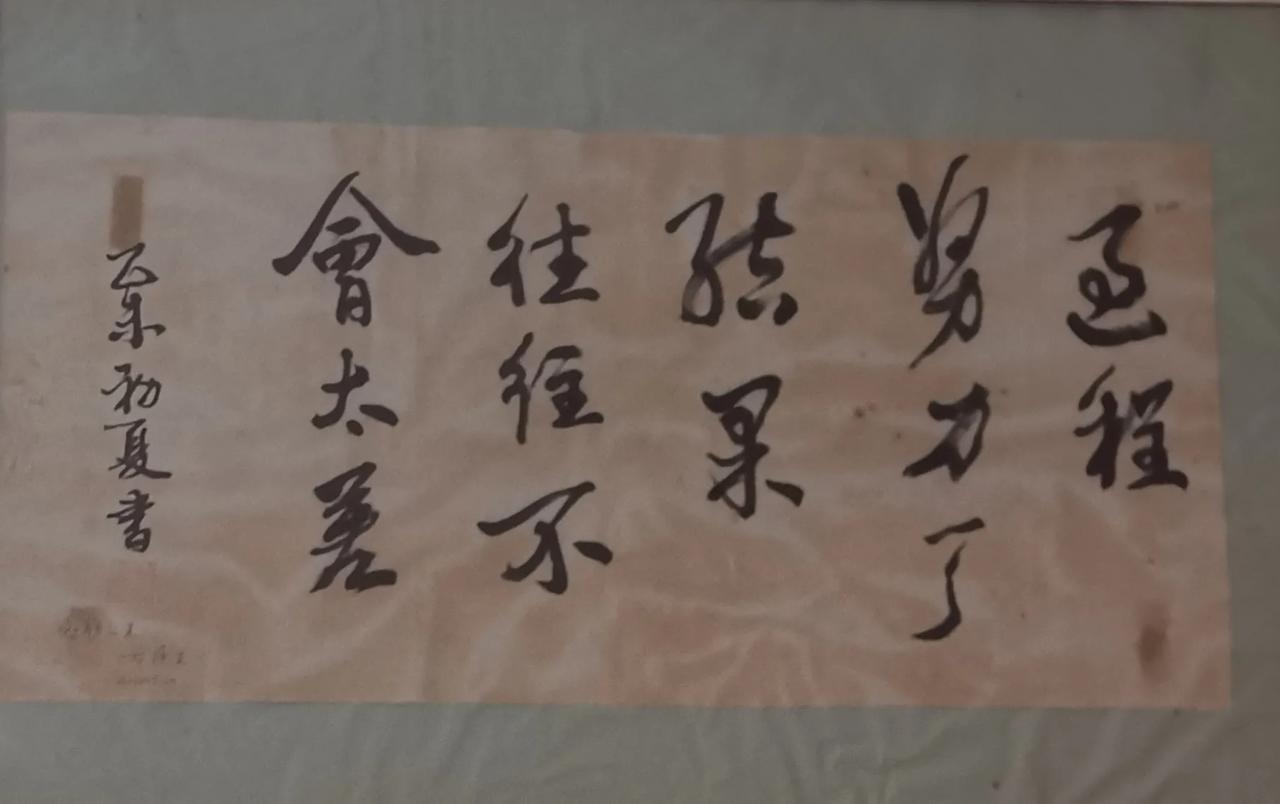 過程
努力了
結果
往往不
會太差
乙未初夏書